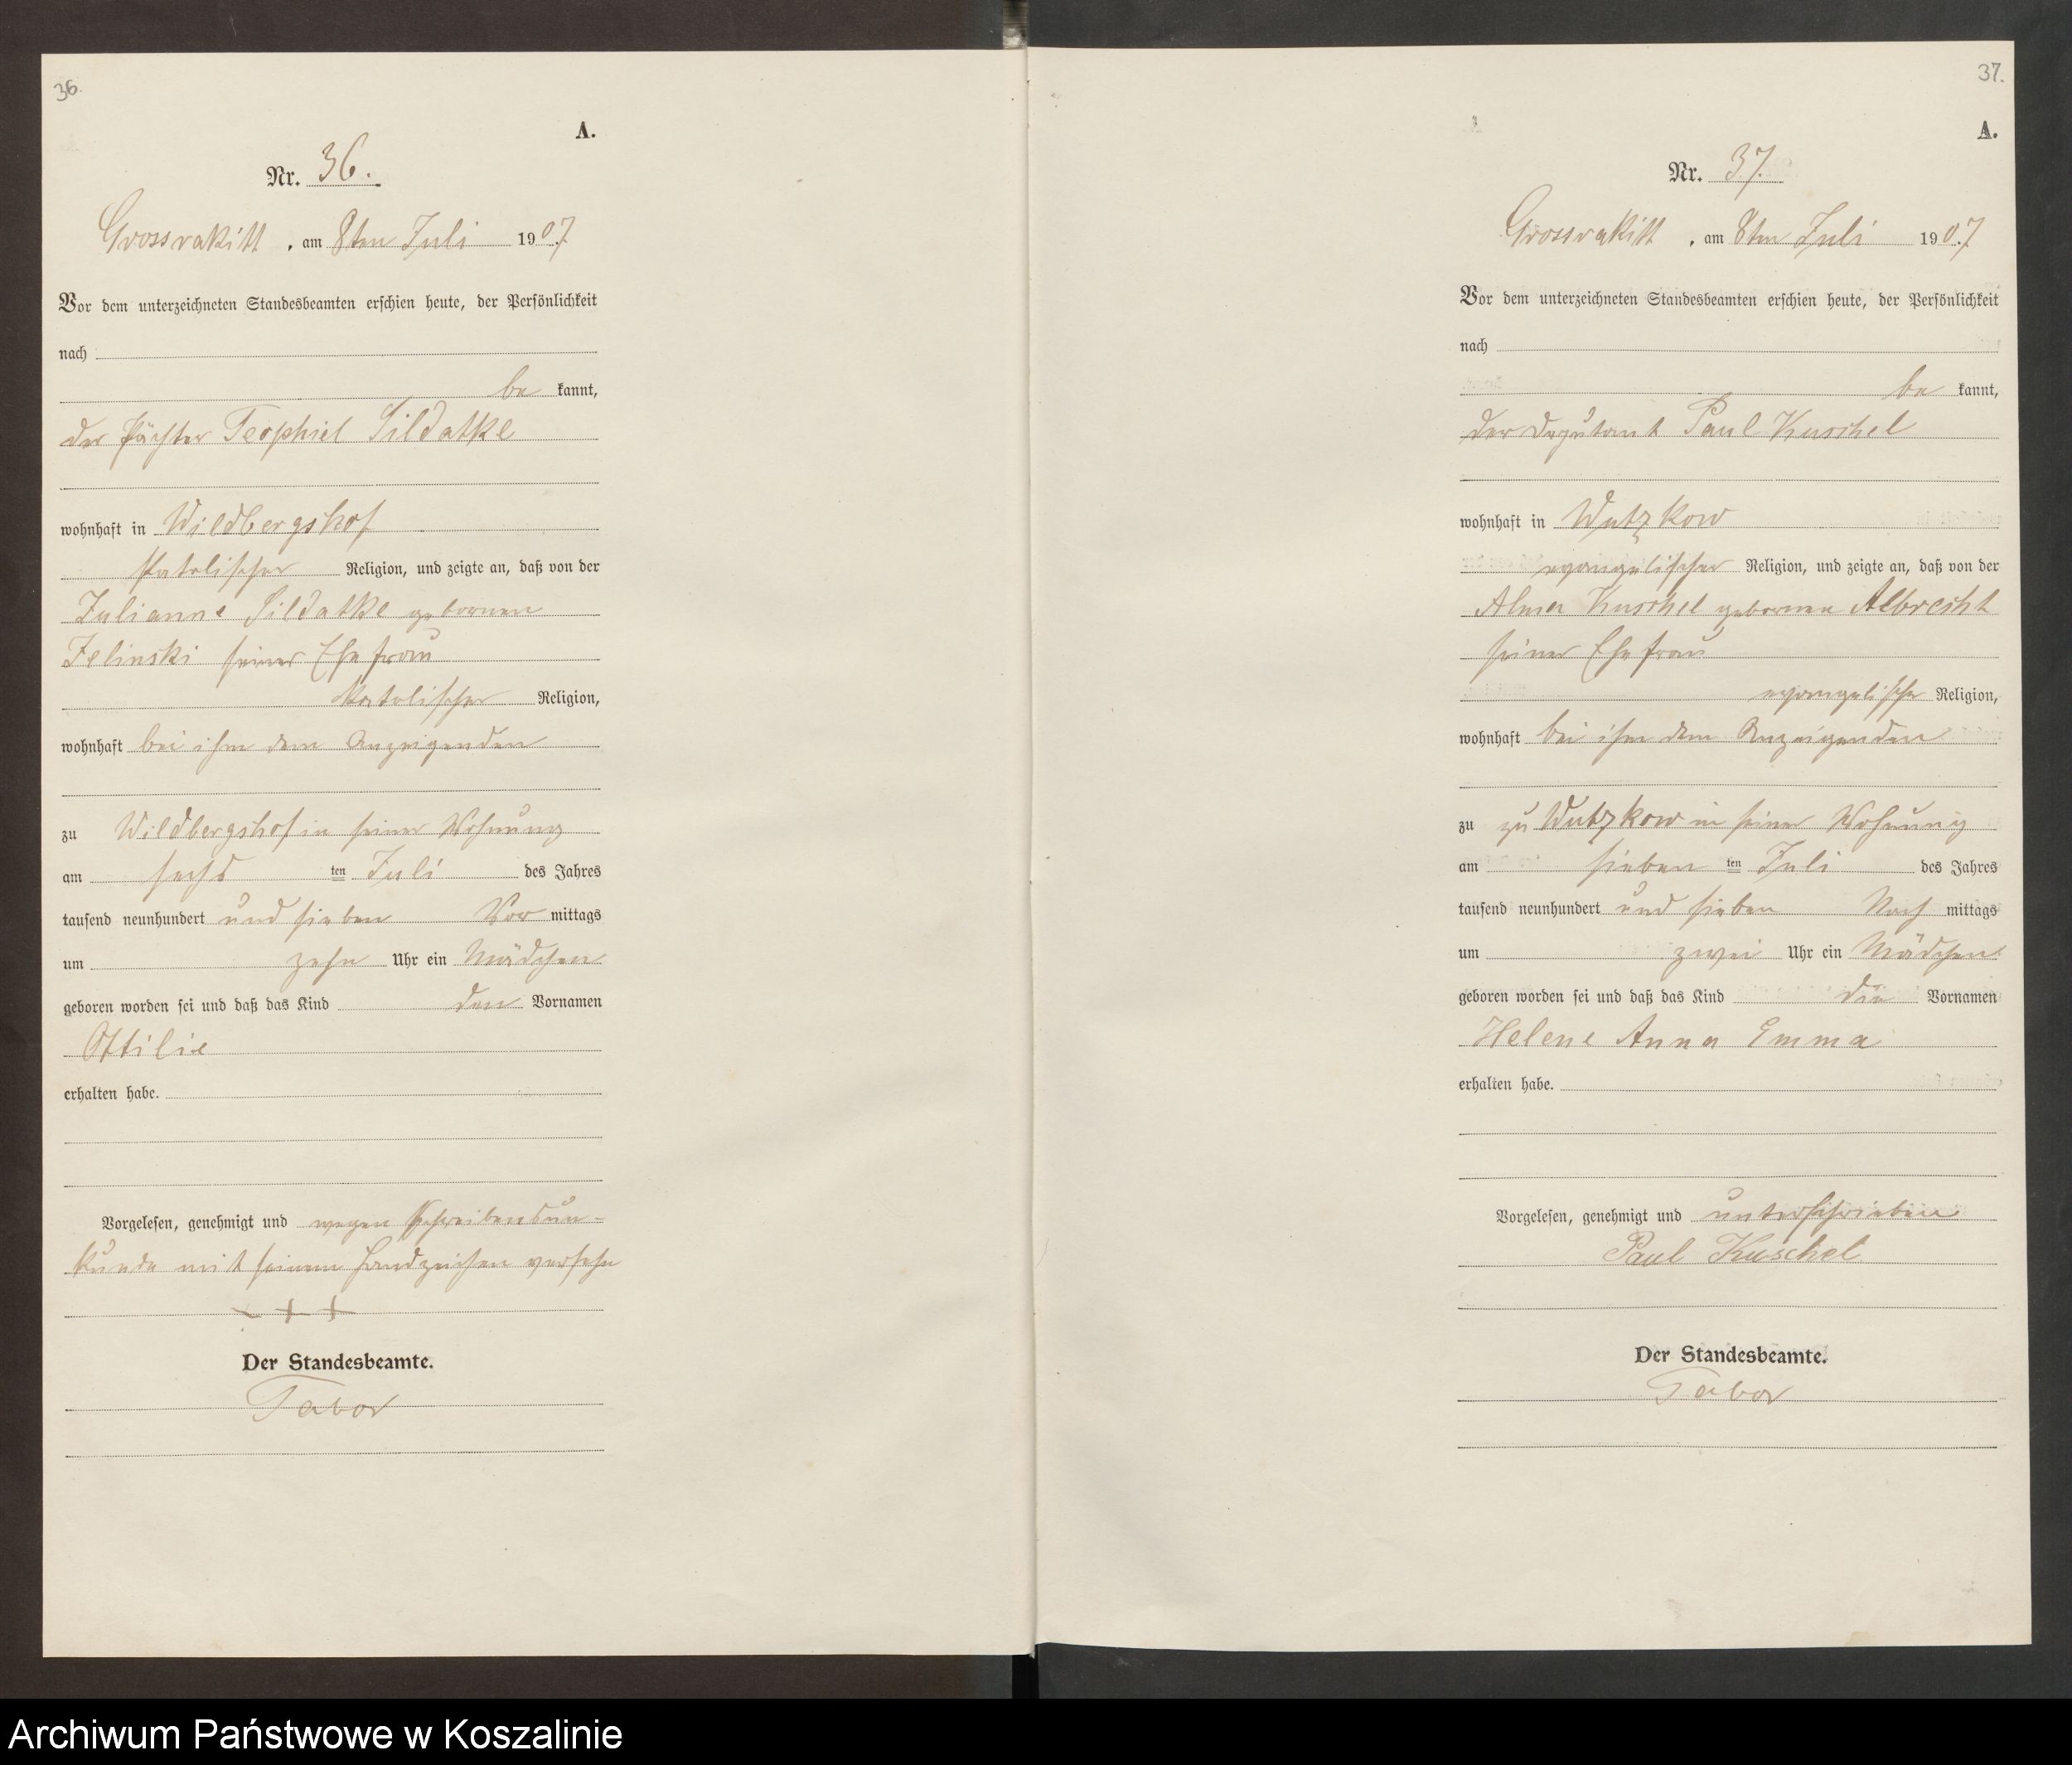 36.
A.
Nr. 36.
Grossrakitt, am 8ten Juli 1907
Vor dem unterzeichneten Standesbeamten erschien heute, der Persönlichkeit
nach
be kannt,
der Pächter Teophiel Sildatke
wohnhaft in Wildbergshof
katolischer Religion, und zeigte an, daß von der
Julianne Sildatke gebornen
Zelinski seiner Ehefrau
katolischer Religion,
wohnhaft bei ihm dem Anzeigenden
zu Wildbergshof in seiner Wohnung
am sechs ten Juli des Jahres
tausend neunhundert und sieben Vor mittags
um zehn Uhr ein Mädchen
geboren worden sei und daß das Kind den Vornamen
Ottilie
erhalten habe.
Vorgelesen, genehmigt und wegen Schreibensun-
kunde mit seinem Handzeichen versehn
+ + +
Der Standesbeamte.
Tabor
37.
A.
Nr. 37.
Grossrakitt, am 8ten Juli 1907
Vor dem unterzeichneten Standesbeamten erschien heute, der Persönlichkeit
nach
be kannt,
der Deputant Paul Kuschel
wohnhaft in Wutzkow
evangelischer Religion, und zeigte an, daß von der
Alma Kuschel gebornen Albrecht
seiner Ehefrau
evangelische Religion,
wohnhaft bei ihm dem Anzeigenden
zu zu Wutzkow in seiner Wohnung
am sieben ten Juli des Jahres
tausend neunhundert und sieben Nach mittags
um zwei Uhr ein Mädchen
geboren worden sei und daß das Kind die Vornamen
Helene Anna Emma
erhalten habe.
Vorgelesen, genehmigt und unterschrieben
Paul Kuschel
Der Standesbeamte.
Tabor
Archiwum Państwowe w Koszalinie